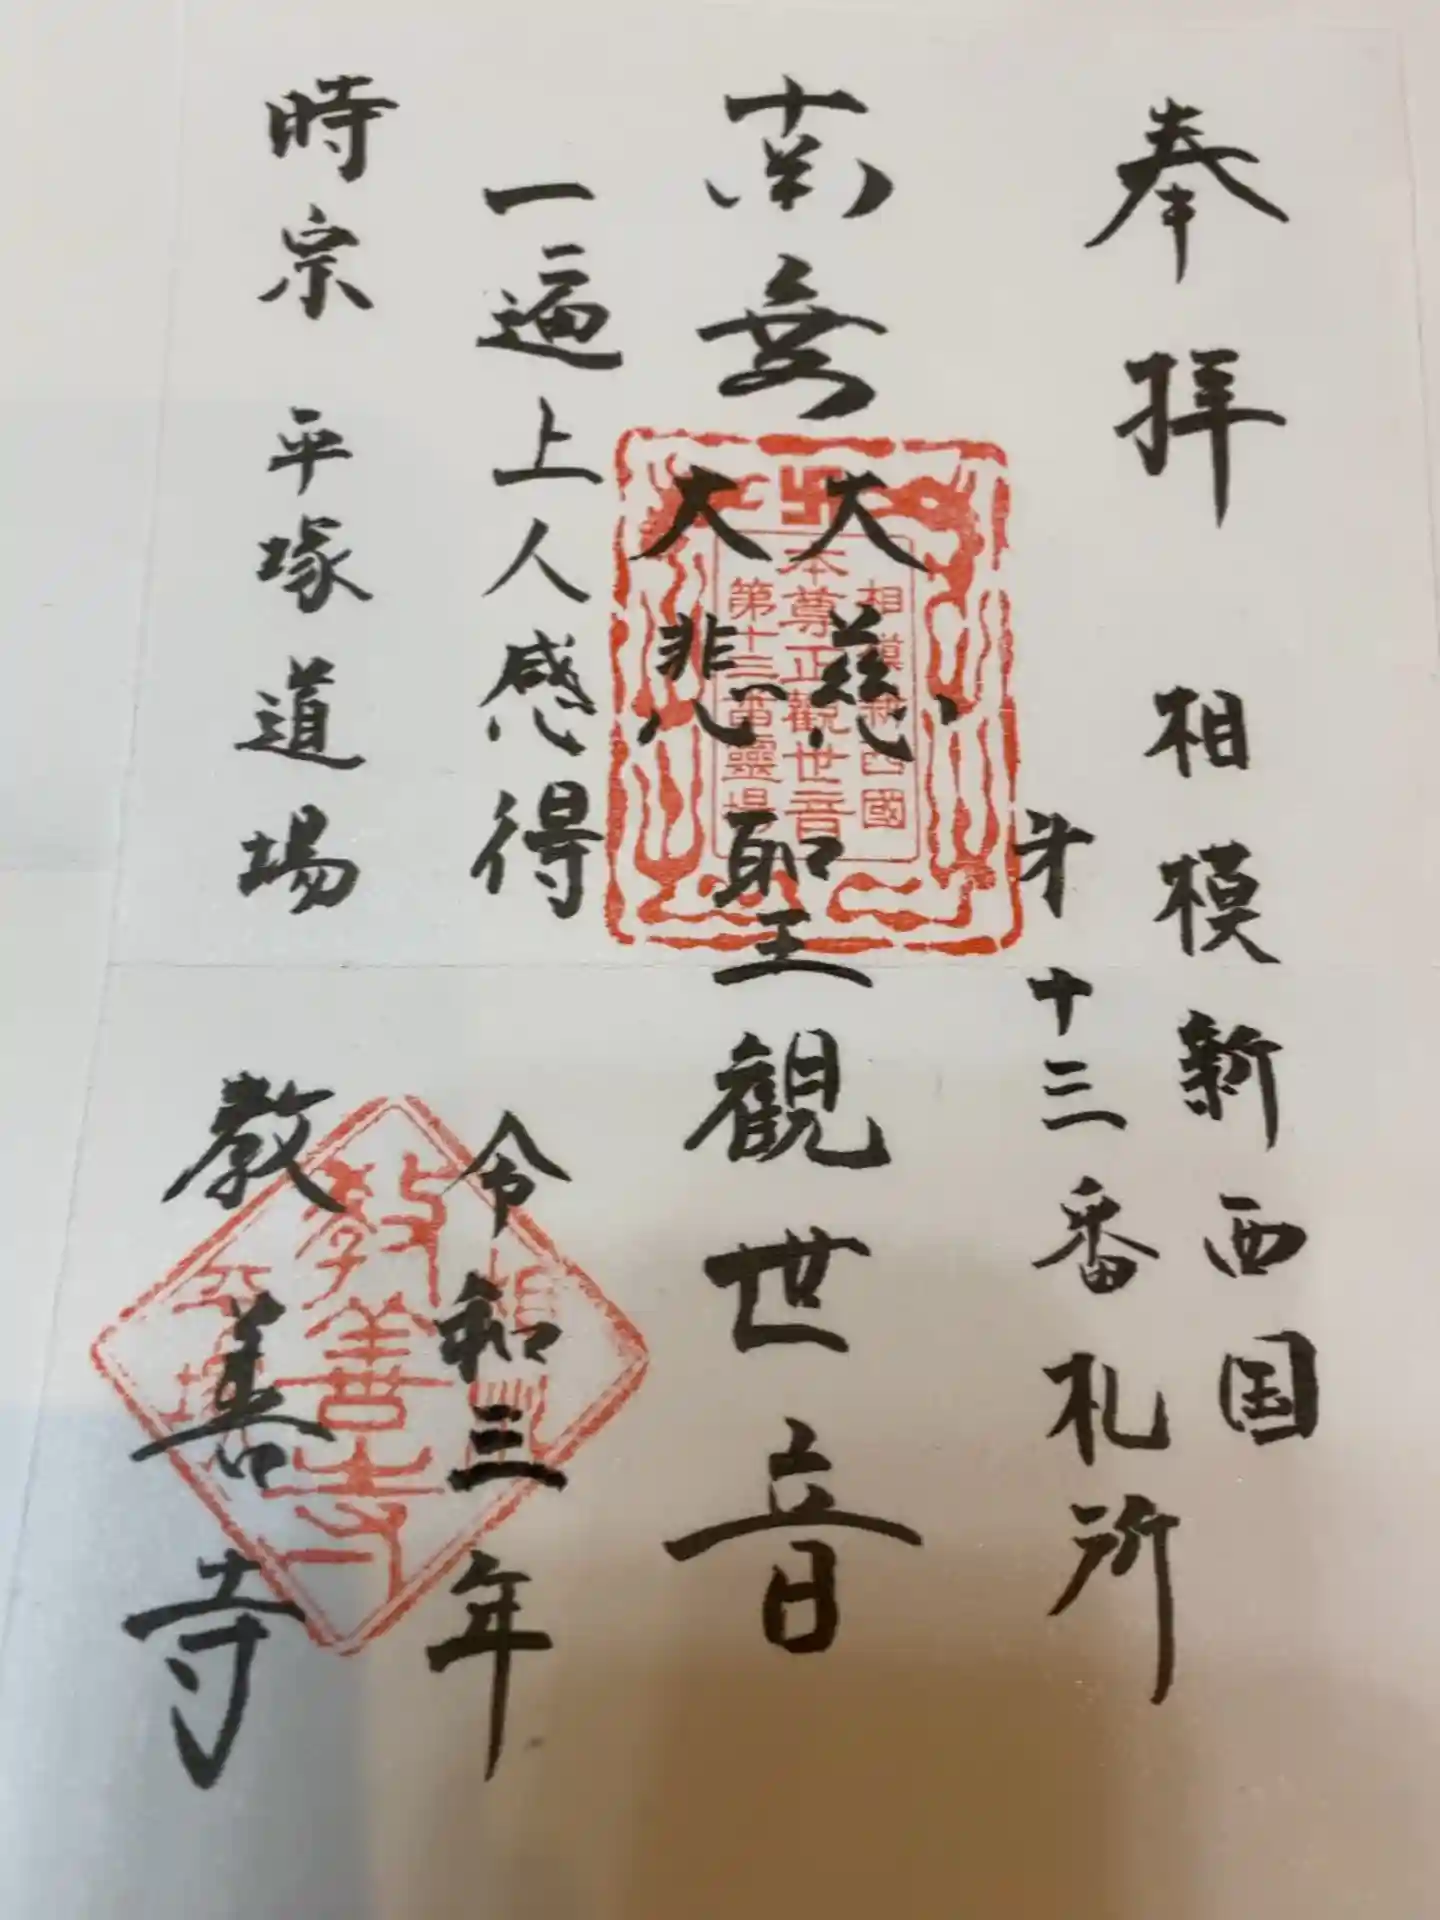 奉拝
相模新西国
㐧十三番札所
南無
大慈
大悲
聖観世音
一遍上人感得
令和三年
時宗 平塚道場
教善寺
相模新西國
本尊正觀世音
第十三番靈場
教善寺
平塚